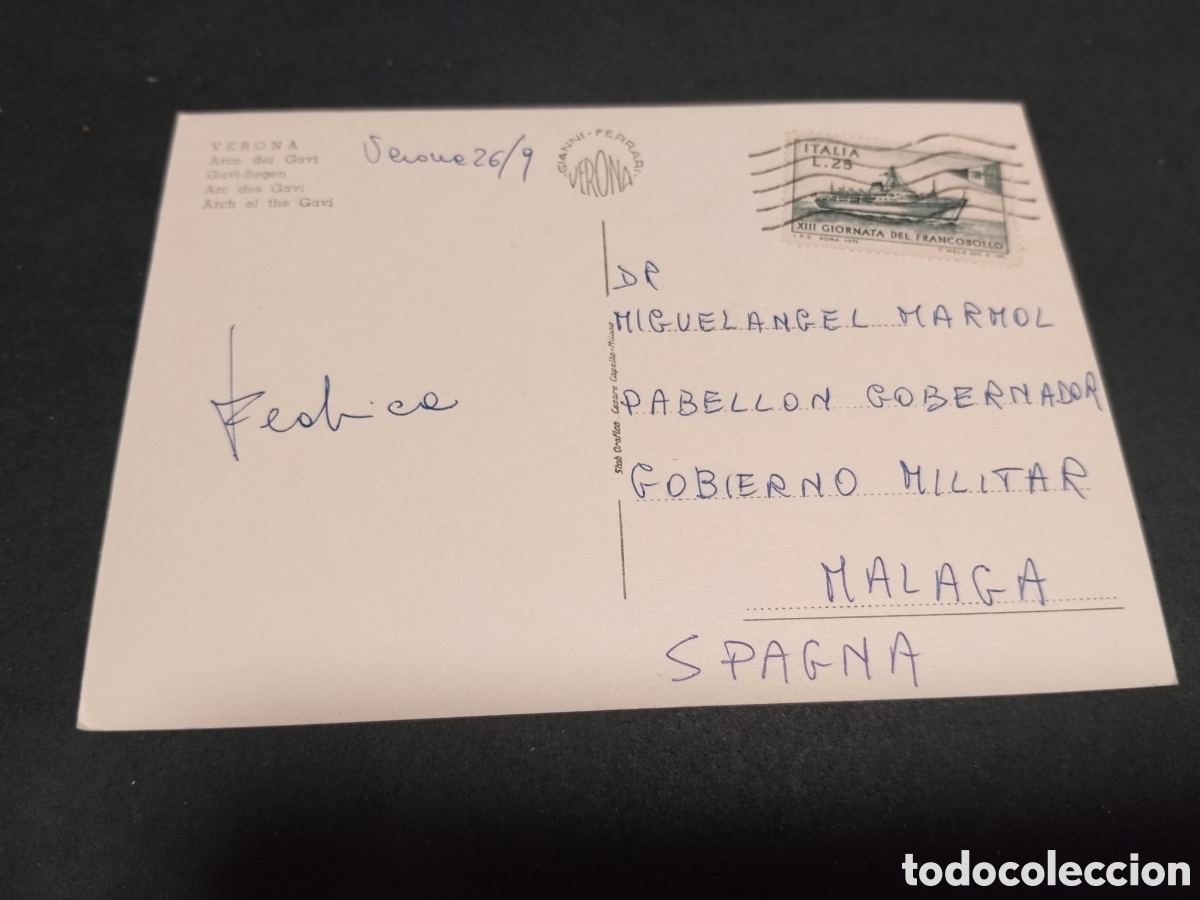 VERONA
Arco dei Gavi
Gavi-Bogen
Arc des Gavi
Arch of the Gavi
Verona 26/9
GIANNI·FERRARI·
VERONA
ITALIA
L.25
XIII GIORNATA DEL FRANCOBOLLO
Federica
Stab Grafico Cesare Capello-Milano
DR
MIGUELANGEL MARMOL
PABELLON GOBERNADOR
GOBIERNO MILITAR
MALAGA
SPAGNA
todocoleccion